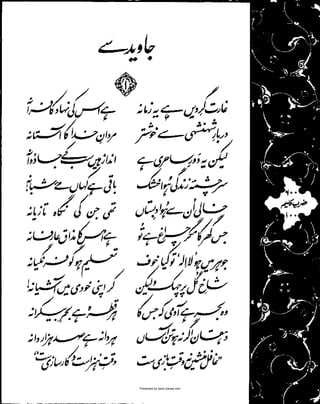 جاوید سے
۱
غارت گرِ دیں ہے یہ زمانہ
ہے اس کی نہاد کافرانہ
دربارِ شہنشہی سے خوشتر
مردانِ خدا کا آستانہ
لیکن یہ دورِ ساحری ہے
انداز ہیں سب کے جادوانہ
سرچشمۂ زندگی ہوا خشک
باقی ہے کہاں مےِ شبانہ
خالی اُن سے ہوا دبستاں
تھی جن کی نگاہ تازیانہ
جس گھر کا مگر چراغ ہے تُو
ہے اس کا مذاق عارفانہ
جوہر میں ہو لا الٰہ تو کیا خوف
تعلیم ہو گو فرنگیانہ
شاخِ گل پر چہک ولیکن
کر اپنی خودی میں آشیانہ!
وہ بحر ہے آدمی کہ جس کا
ہر قطرہ ہے بحرِ بیکرانہ
دہقان اگر نہ ہو تن آساں
ہر دانہ ہے صد ہزار دانہ
"غافل منشیں نہ وقتِ بازی ست
وقتِ ہنر است و کارسازی ست"
Presented by www.iqbalcyberlibrary.net